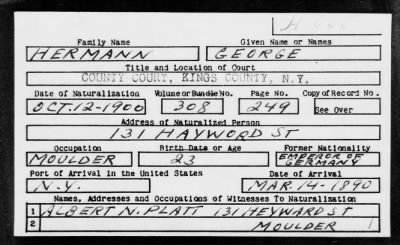 Family Name Given Name or Names
HERMANN GEORGE
Title and Location of Court
COUNTY COURT, KINGS COUNTY, N.Y.
Date of Naturalization Volume or Bundle No. Page No. Copy of Record No.
OCT. 12-1900 308 249 See Over
Address of Naturalized Person
131 HAYWORD ST
Occupation Birth Date or Age Former Nationality
MOULDER 23 EMPEROR OF
GERMANY
Port of Arrival in the United States Date of Arrival
N.Y. MAR. 14-1890
Names, Addresses and Occupations of Witnesses To Naturalization
1 ALBERT N. PLATT 131 HEYWARD ST
2 MOULDER